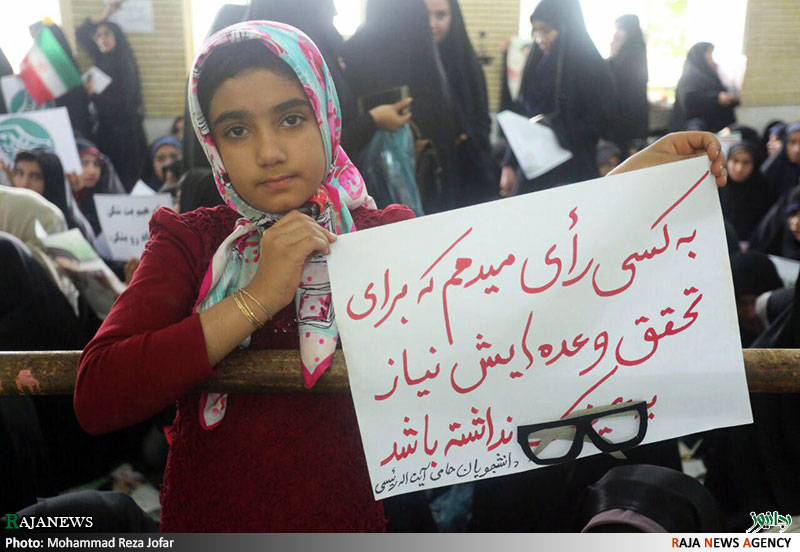 به کسی رأی میدهم که برای
تحقق وعده‌هایش نیاز
نداشته باشد
دانشجویان حامی آیت اله رئیسی
RAJANEWS
رجانیوز
Photo: Mohammad Reza Jofar
RAJA NEWS AGENCY